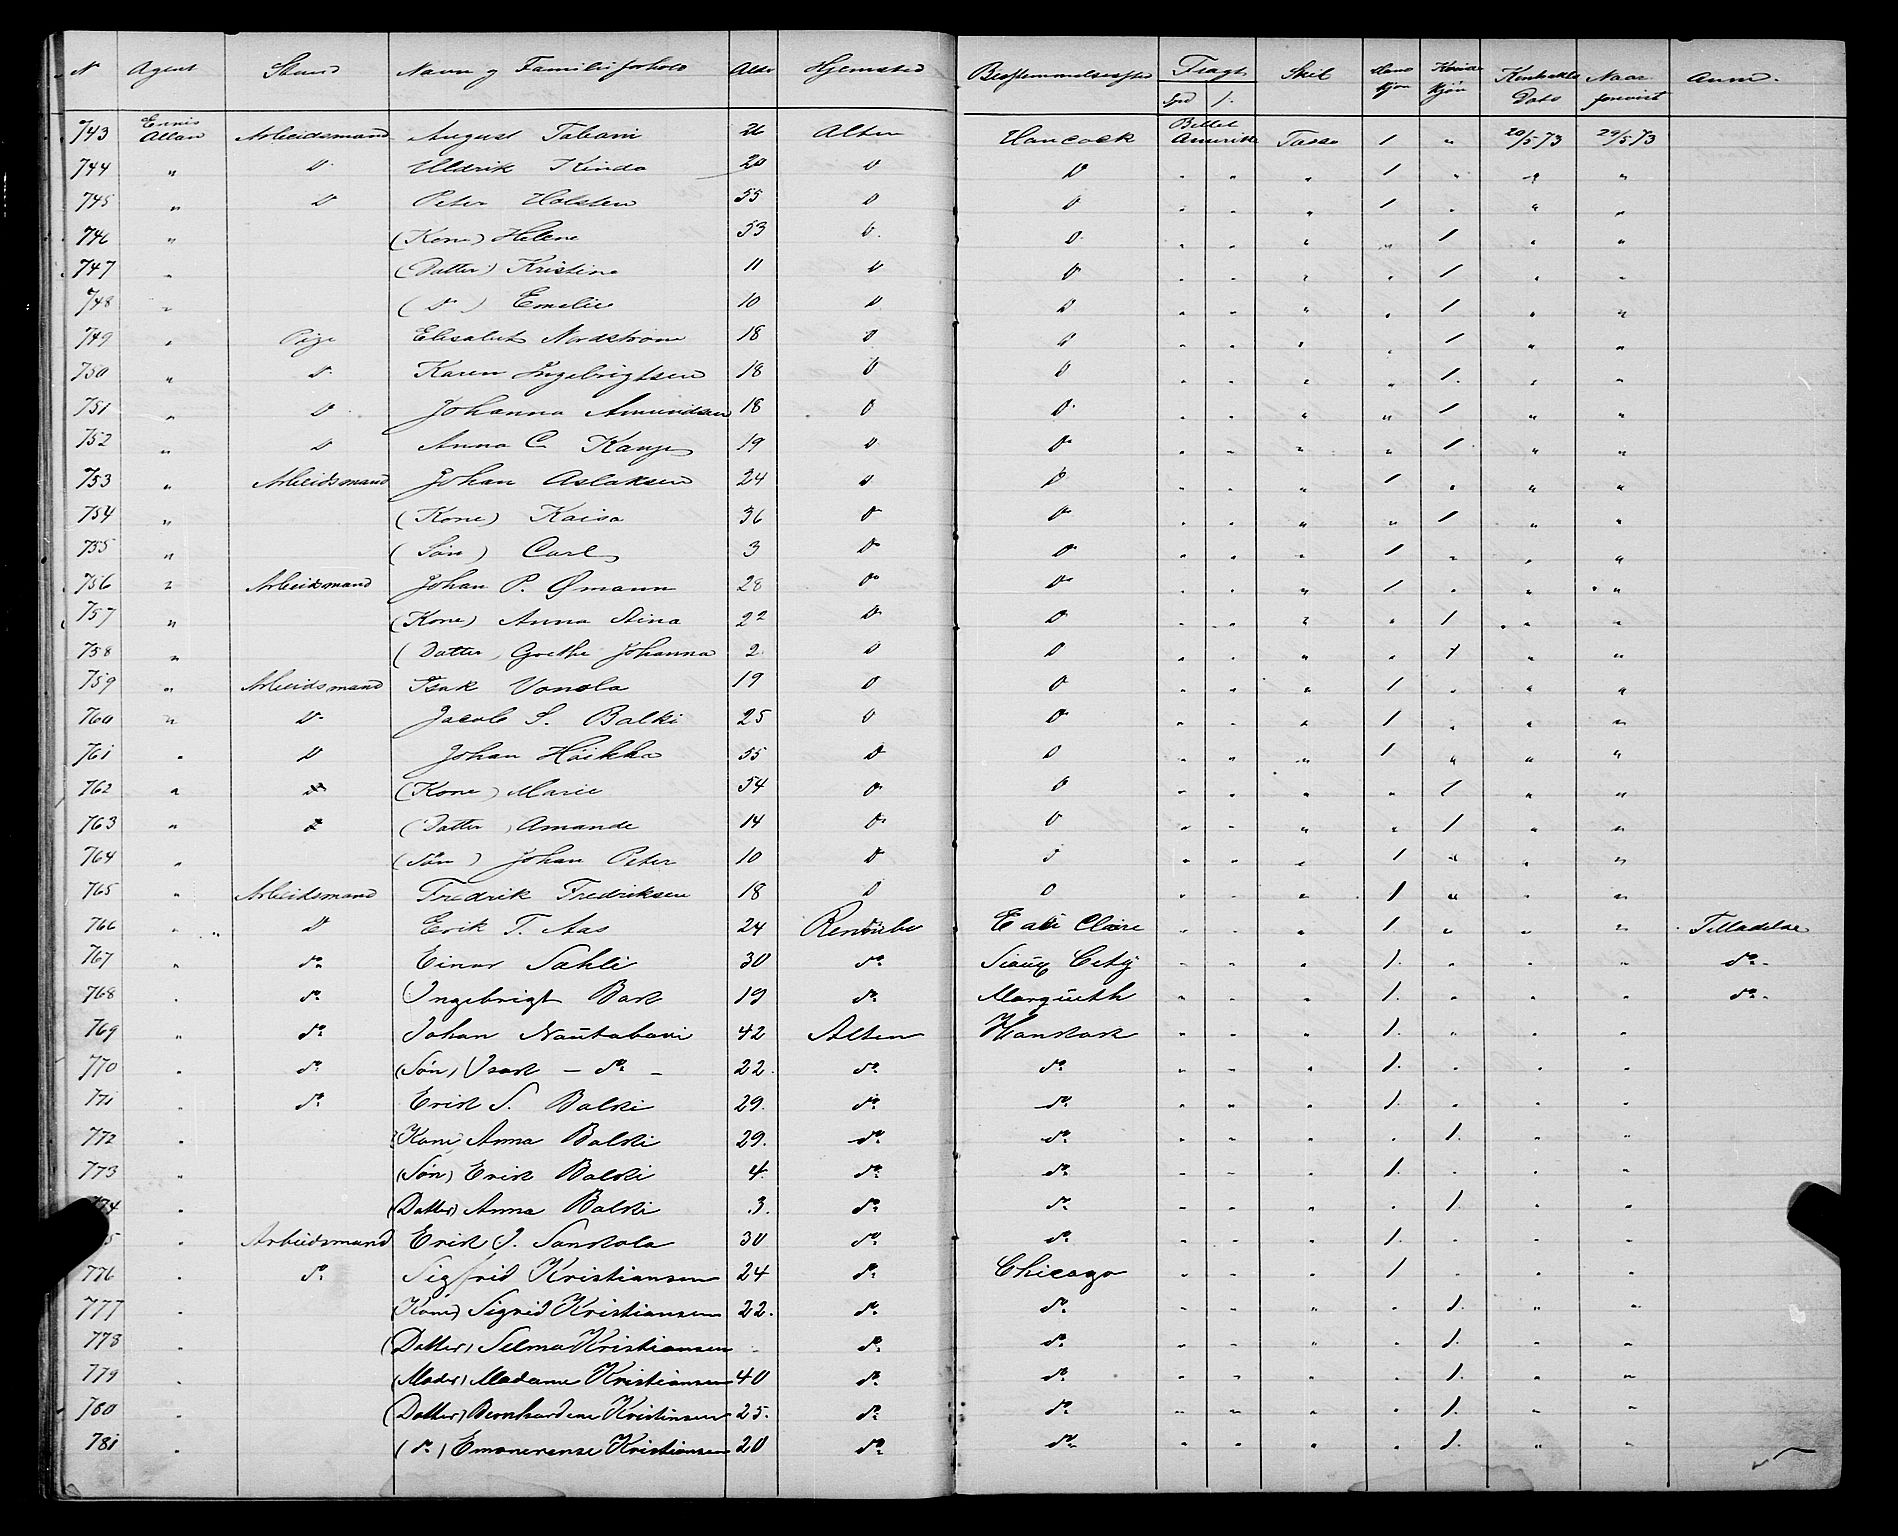 N Agent Stand Navn og Familieforhold Alder Hjemsted Bestemmelsessted Fragt Spd ſ. Skib Mandkjøn Kvindekjøn Kontrakts Dato Naar forevist Anm.
743 Ennis Allan Arbeidsmand August Tabani 26 Alten Hancock Billet Amerika Tasso 1 " 20/5 73 29/5 73
744 " D Uldrik Kinda 20 D D " " " 1 " " "
745 " D Peter Holsten 55 D D " " " 1 " " "
746 " (Kone) Helene 53 D D " " " " 1 " "
747 " (Datter) Kristine 11 D D " " " " 1 " "
748 " (D) Emelie 10 D D " " " " 1 " "
749 " Pige Elisabet Nordstrøm 18 D D " " " " 1 " "
750 " D Karen Ingebrigtsen 18 D D " " " " 1. " "
751 " D Johanna Amundsen 18 D D " " " " 1 " "
752 " D Anna C. Kange 19 D D " " " " 1 " "
753 " Arbeidsmand Johan Aslaksen 24 D D " " " 1 " " "
754 " (Kone) Kaisa 36 D D " " " " 1 " "
755 " (Søn) Carl 3 D D " " " 1 " " "
756 " Arbeidsmand Johan P. Ømann 28 D D " " " 1 " " "
757 " (Kone) Anna Stina 22 D D " " " " 1 " "
758 " (Datter) Grethe Johanna 2 D D " " " " 1 " "
759 " Arbeidsmand Isak Vonola 19 D D " " " 1 " " "
760 " D Jacob S. Balki 25 D D " " " 1 " " "
761 " D Johan Høikka 55 D D " " " 1 " " "
762 " (Kone) Marie 54 D D " " " " 1 " "
763 " (Datter) Amande 14 D D " " " " 1 " "
764 " (Søn) Johan Peter 10 D D " " " 1 " " "
765 " Arbeidsmand Fredrik Fredriksen 18 D D " " " 1 " " "
766 " D Erik T. Aas 24 Eau Claire " " " 1 " " " Tilladelse
767 " do Einar Sahli 30 do Sioux City " " " 1. " " " do
768 " do Ingebrigt Bak 19 do Marqueth " " " 1. " " " do
769 " do Johan Nautabari 42 Alten Hankok " " " 1. " " "
770 " do (Søn) Isak – do – 22. do do " " " 1. " " "
771 " do Erik S. Balki 29. do do " " " 1. " " "
772 " (Kone) Anna Balki 29. do do " " " " 1. " "
773 " (Søn) Erik Balki 4. do do " " " 1. " " "
774 " (Datter) Anna Balki 3. do do " " " " 1. " "
5 " Arbeidsmand Erik J. Sankola 30 do do " " " 1. " " "
776 " do Sigfrid Kristiansen 24 do Chicago " " " 1 " " "
777 " (Kone) Sigrid Kristiansen 22. do do " " " " 1. " "
778 " (Datter) Selma Kristiansen - do do " " " " 1. " "
779 " (Moder) Madame Kristiansen 40 do do " " " " 1. " "
780 " (Datter) Bernhardine Kristinsen 25. do do " " " " 1. " "
781 " (do) Emonerense Kristiansen 20 do do " " " " 1. " "